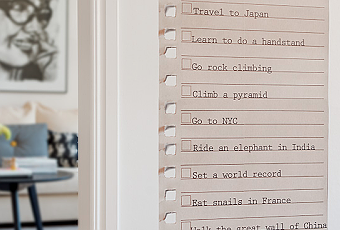 Travel to Japan
Learn to do a handstand
Go rock climbing
Climb a pyramid
Go to NYC
Ride an elephant in India
Set a world record
Eat snails in France
Walk the great wall of China